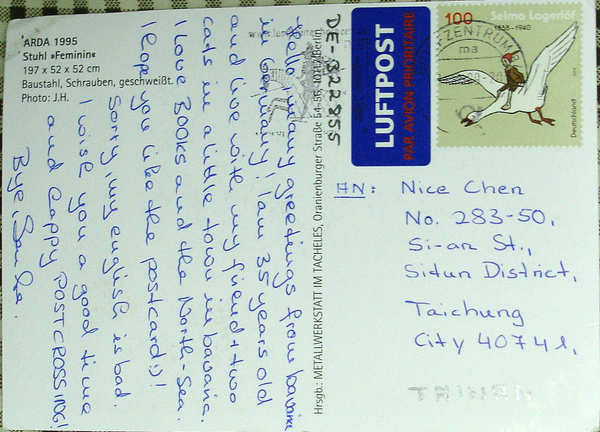 ARDA 1995
Stuhl »Feminin«
197 x 52 x 52 cm
Baustahl, Schrauben, geschweißt.
Photo: J.H.
Hello! Many greetings from bavaria
in Germany! I am 35 years old
and live with my friend + two
cats in a little town in bavaria.
I love BOOKS and the North-Sea.
I hope you like the postcard :)!
Sorry, my english is bad.
I wish you a good time
and happy POSTCROSSING!
Bye,
DE-322855
Hrsgb.: METALLWERKSTATT IM TACHELES, Oranienburger Straße 54-56, 10117 Berlin
LUFTPOST
PAR AVION PRIORITAIRE
100
Selma Lagerlöf
1858-1940
Deutschland
FZENTRUM
ma
AN: Nice Chen
No. 283-50,
Si-an St.,
Situn District,
Taichung
City 40741,